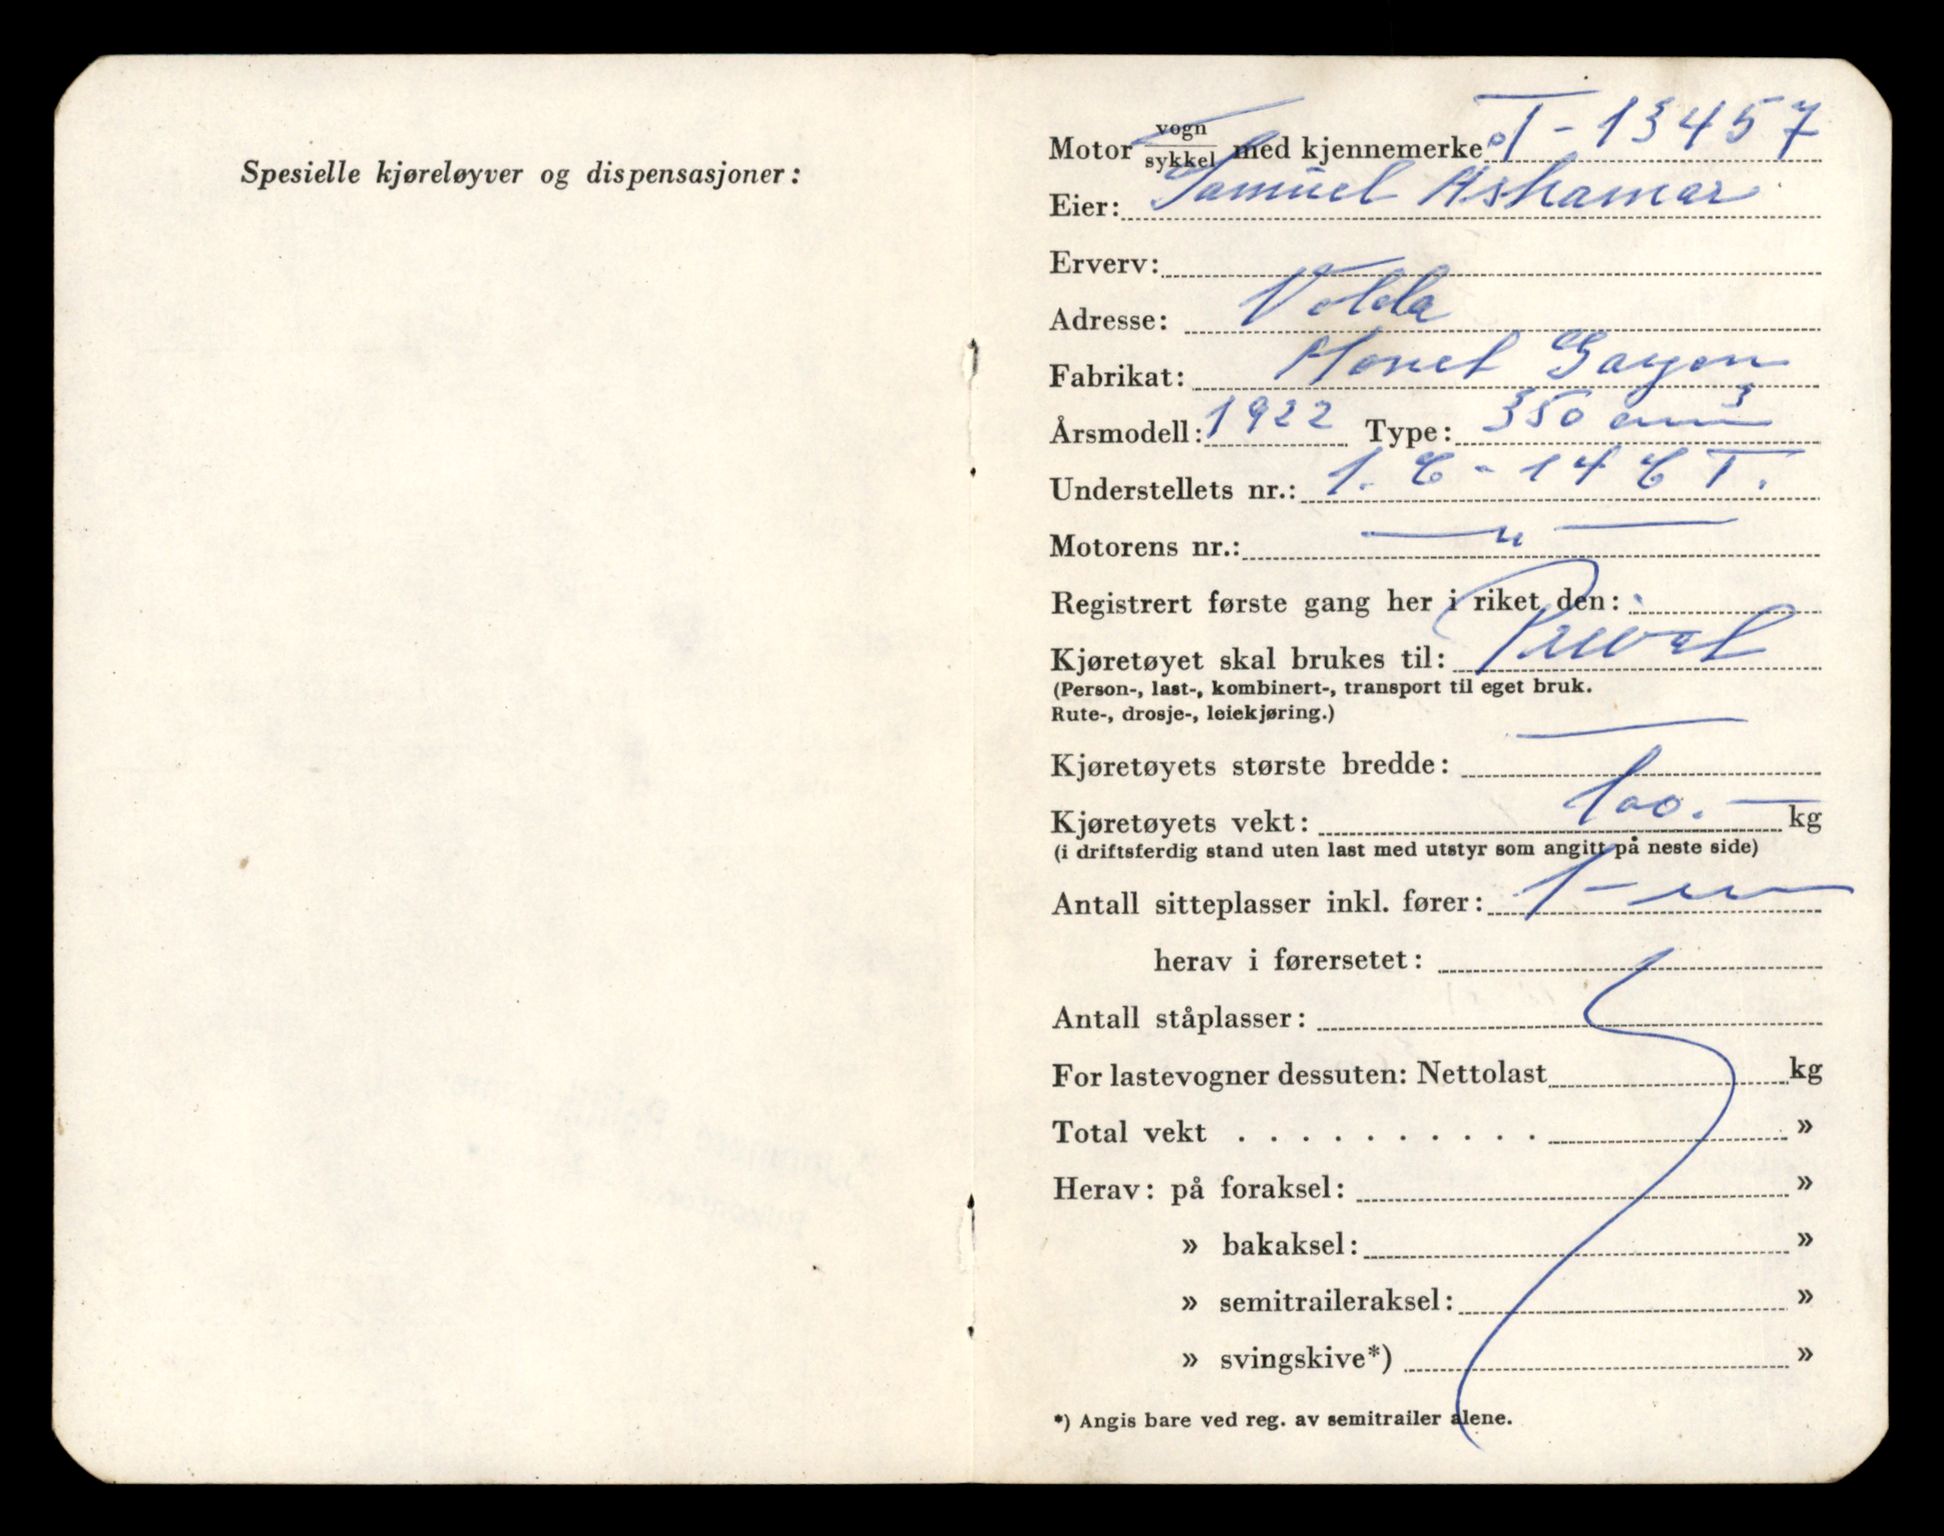 Spesielle kjøreløyver og dispensasjoner:
Motor vogn/sykkel med kjennemerke T-13457
Eier: Samuel Åshamar
Erverv:
Adresse: Volda
Fabrikat:
Årsmodell: 1922 Type: 350 cm³
Understellets nr.:
Motorens nr.: — " —
Registrert første gang her i riket den:
Kjøretøyet skal brukes til: Privat
(Person-, last-, kombinert-, transport til eget bruk.
Rute-, drosje-, leiekjøring.)
Kjøretøyets største bredde: —
Kjøretøyets vekt: 100.— kg
(i driftsferdig stand uten last med utstyr som angitt på neste side)
Antall sitteplasser inkl. fører: 1 -
herav i førersetet:
Antall ståplasser:
For lastevogner dessuten: Nettolast kg
Total vekt . . . . . . . . . . . »
Herav: på foraksel: »
» bakaksel: »
» semitraileraksel: »
» svingskive*) »
*) Angis bare ved reg. av semitrailer alene.